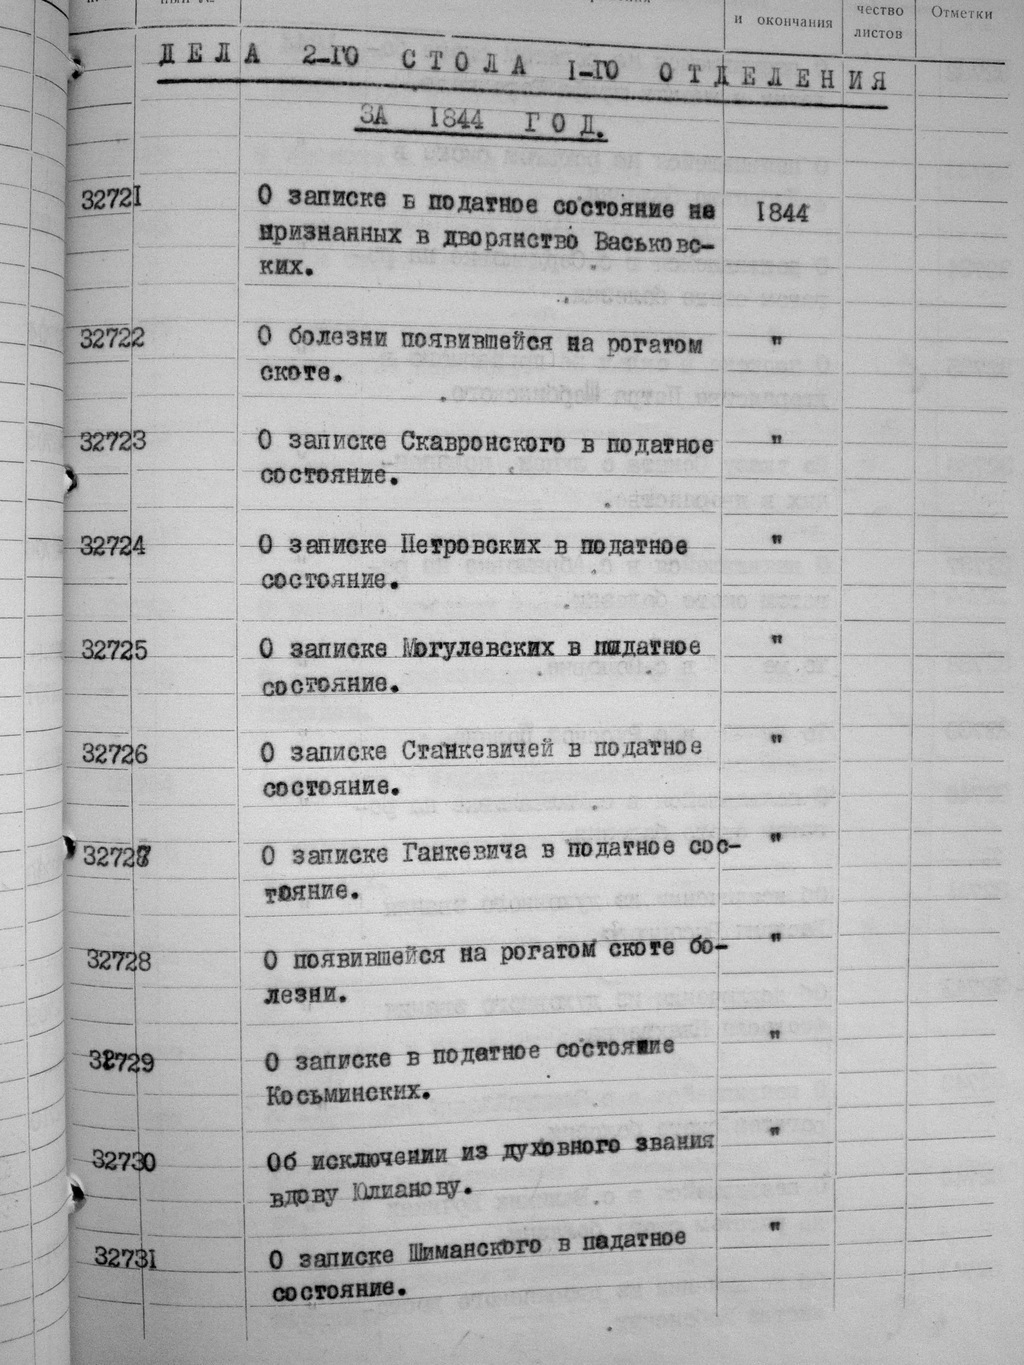 и окончания
чество
листов
Отметки
ДЕЛА 2-ГО СТОЛА I-ГО ОТДЕЛЕНИЯ
ЗА 1844 ГОД.
32721 О записке в податное состояние не 1844
признанных в дворянство Васьковс-
ких.
32722 О болезни появившейся на рогатом "
скоте.
32723 О записке Скавронского в податное "
состояние.
32724 О записке Петровских в податное "
состояние.
32725 О записке Могулевских в податное "
состояние.
32726 О записке Станкевичей в податное "
состояние.
32727 О записке Ганкевича в податное сос- "
тояние.
32728 О появившейся на рогатом скоте бо- "
лезни.
32729 О записке в податное состояние "
Косьминских.
32730 Об исключении из духовного звания "
вдову Юлианову.
32731 О записке Шиманского в податное "
состояние.